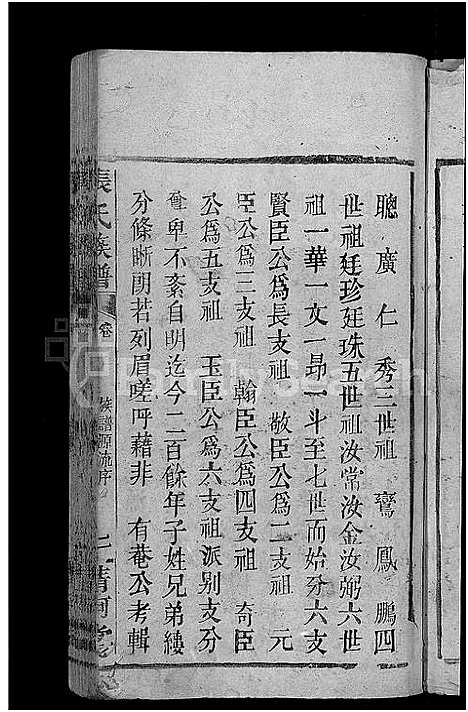 聰廣仁秀三世祖鸞鳳鵬四
世祖廷珍廷珠五世祖汝常汝金汝弼六世
祖一華一文一昂一斗至七世而始分六支
賢臣公爲長支祖敬臣公爲二支祖元
臣公爲三支祖翰臣公爲四支祖奇臣
公爲五支祖玉臣公爲六支祖派别支分
尊卑不紊自明迄今二百餘年子姓兄弟縷
分條晰朗若列眉嗟呼藉非有菴公考輯
張氏族譜
卷
族譜源流序
二
清河堂